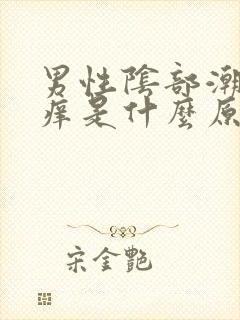 男性陰部潮
痒是什麼原
宋金艷